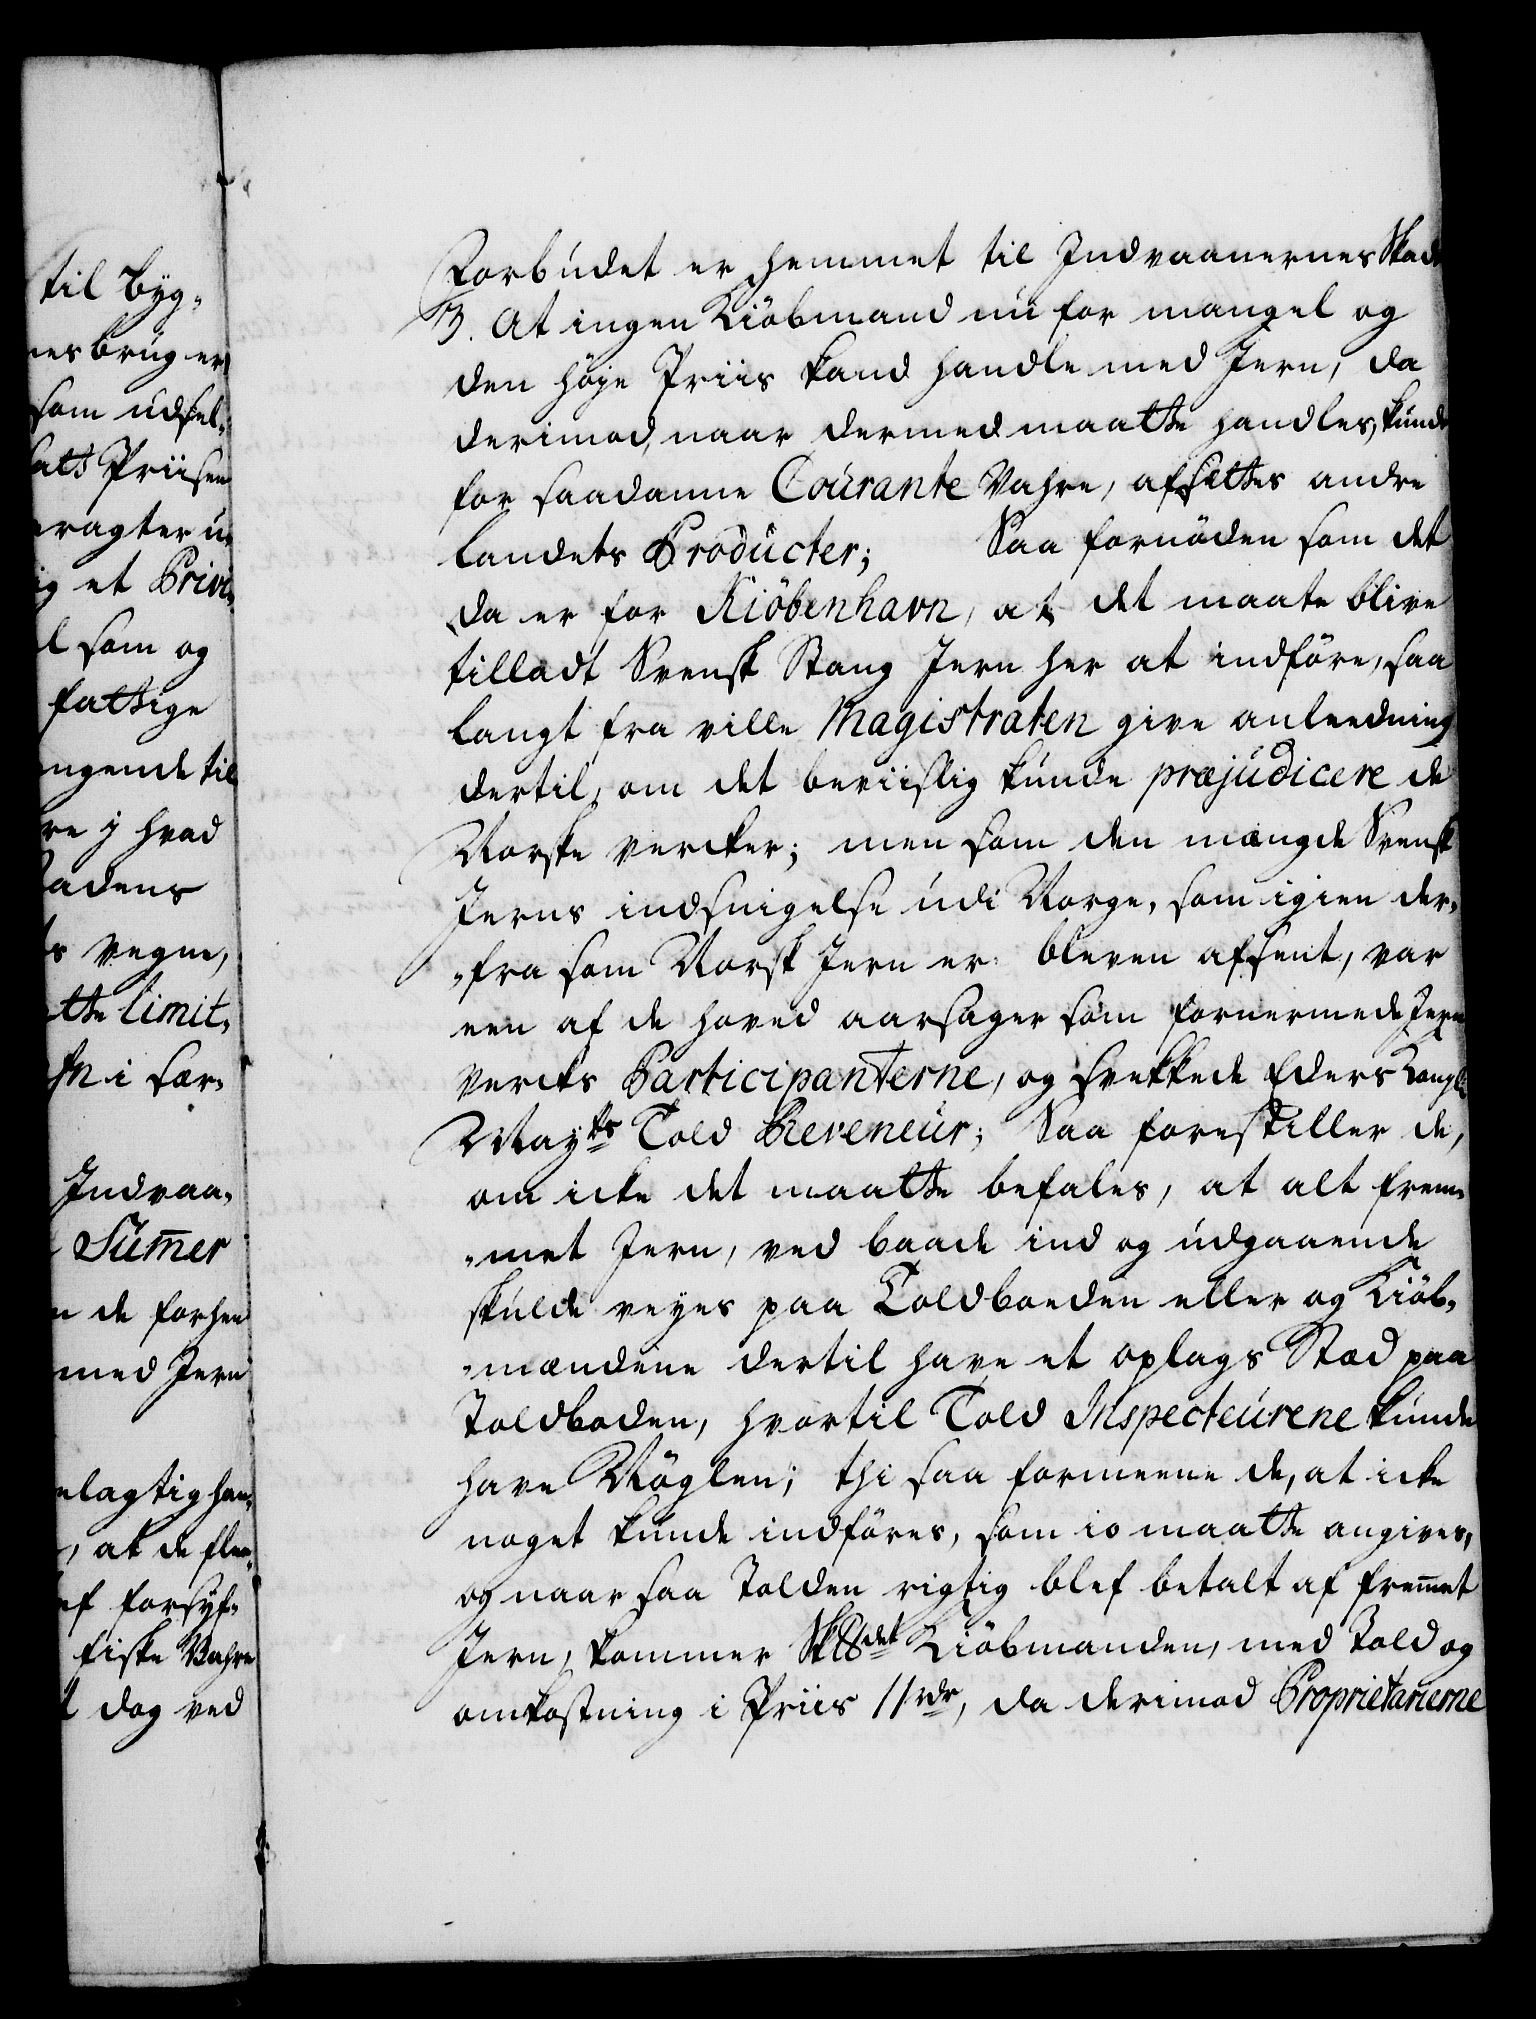 til Byg-
nes brug er
som udsel-
satt Priisen
ragter u
ig et Privi-
l som og
fattige
ngende til
re i hvad
adens
s vegne,
tte limit-
i sær-
Indvaa-
Sum̅er
de forhen
med Jern
lagtig han-
, at de fle
ef forsÿf-
fiske Vahre
dog ved
Forbudet er hemmet til Indvaanernes Skade
3. At ingen Kiöbmand nu for mangel og
den höje Priis kand handle med Jern, da
derimod, naar dermed maatte handles, kunde
for saadanne Courante Vahre, afsettes andre
landets Producter; Saa fornöden som det
da er for Kiöbenhavn, at det maate blive
tilladt Svensk Stang Jern her at indföre, saa
langt fra ville Magistraten give anleedning
dertil, om det beviislig kunde præjudicere de
Norske Vercker; men som den mængde Svensk
Jerns indsnigelse udi Norge, som igien der-
-fra som Norsk Jern er bleven afsent, var
een af de hoved aarsager som fornermede Jern
Vercks Participanterne, og svekkede Eders Kongl:
Mayts Told Reveneur; Saa forestiller de,
om icke det maatte befales, at alt frem-
-met Jern, ved baade ind og udgaaende
skulde veyes paa Toldboeden eller og Kiöb-
-mændene dertil have et oplags Stæd paa
Toldboden, hvortil Told Inspecteurene kunde
have Nöglen; thi saa formeene de, at icke
noget kunde indföres, som io maatte angives,
og naar saa Tolden rigtig blef betalt af frem̅et
Jern, kommer Sk℔det Kiöbmanden, med Told og
omkostning i Priis 11 rdr, da derimod Proprietarierne